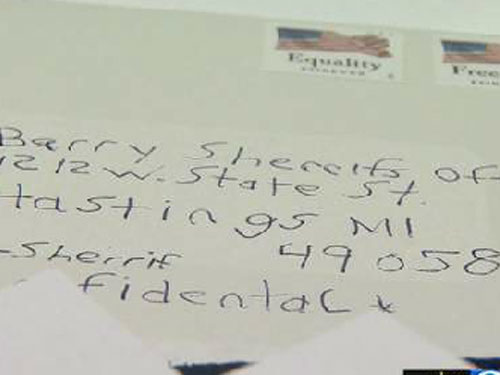 Equality
FOREVER
Free
Barry Sherrifs Of
1212 W. State St.
Hastings MI
-Sherrif 49058
fidental *